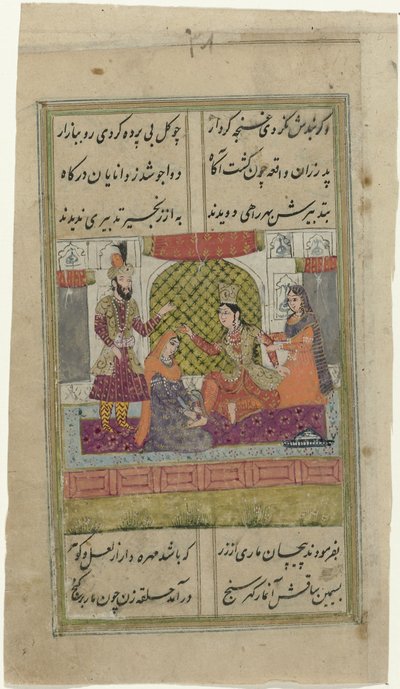 وگر بندش نکردی غنچه کردار چو گل بی پرده کردی رو ببازار
پدر زان واقعه چون گشت آگاه دوا جو شد ز دانایان درگاه
بتدبیرش بهر راهی دویدند به از زنجیر تدبیری ندیدند
بفرمودند پیچان ماری از زر که باشد مهره دار از لعل و گوهر
بسیمین ساقش آن مار گهر سنج درآمد حلقه زن چون مار بر گنج